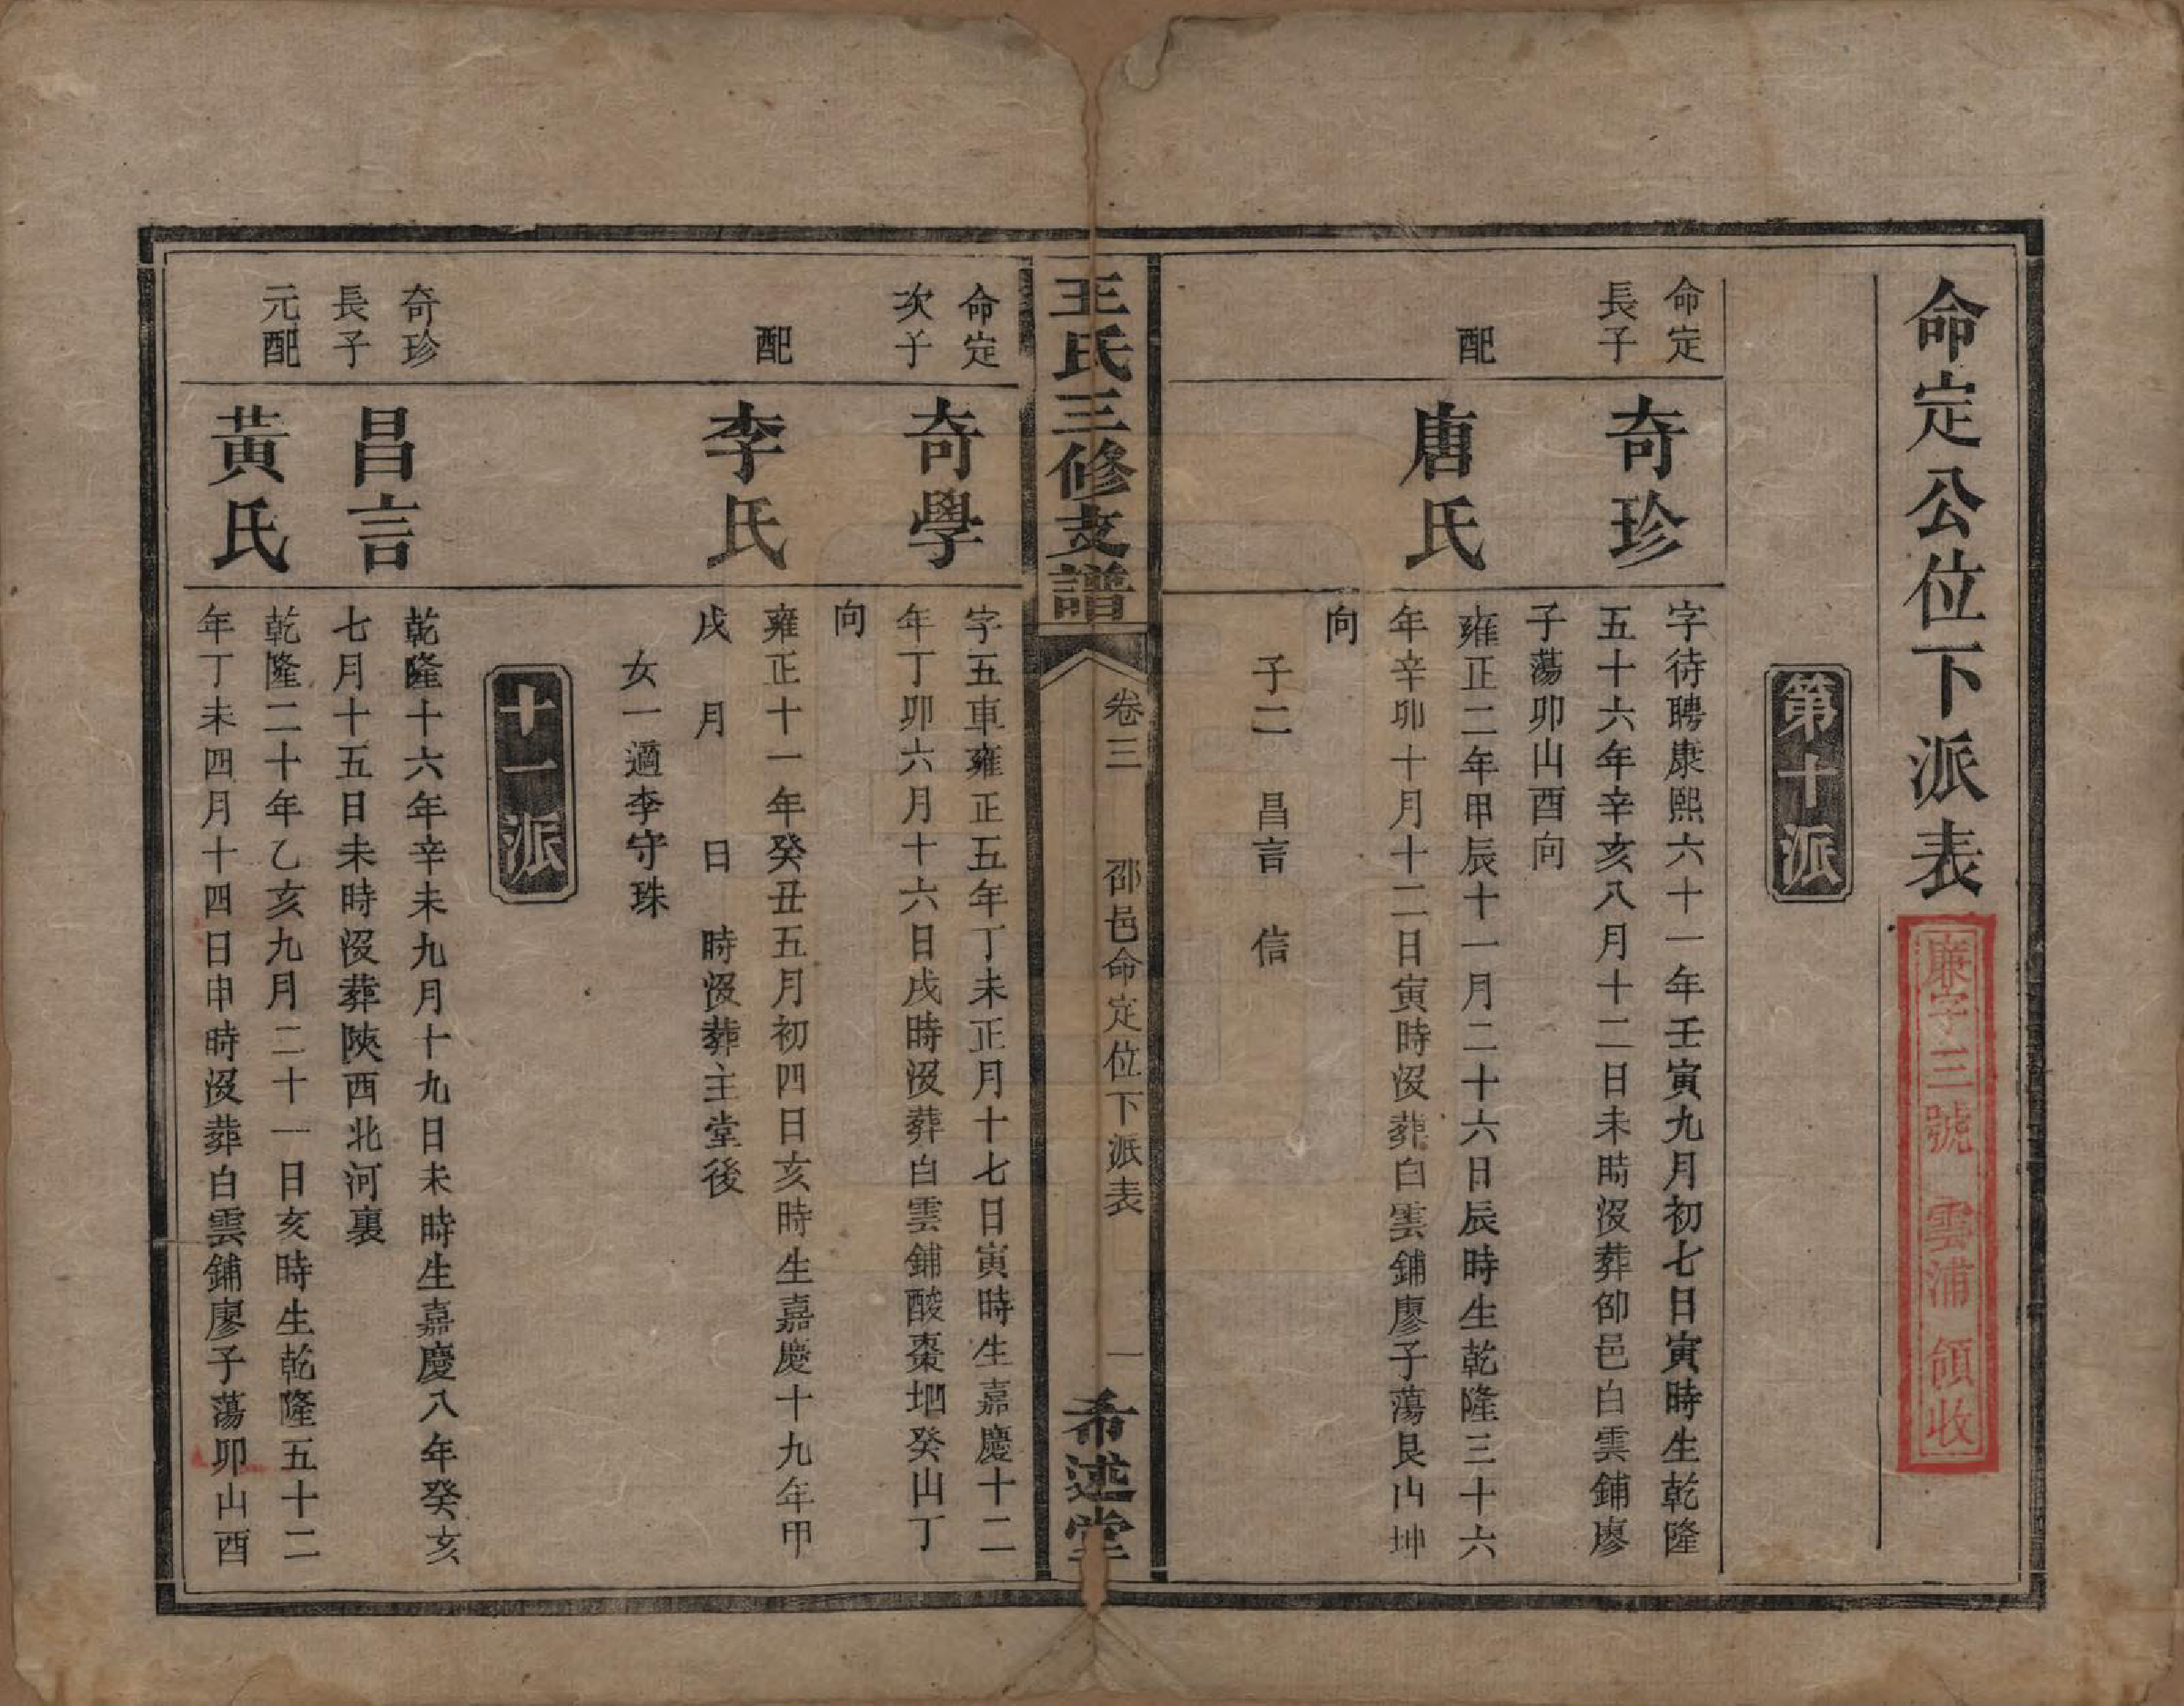 命定公位下派表
廉字三號 雲浦 領收
第十派
命定
長子
奇珍
字待聘康熙六十一年壬寅九月初七日寅時生乾隆
五十六年辛亥八月十二日未時沒葬邵邑白雲鋪廖
子蕩卯山酉向
配
唐氏
雍正二年甲辰十一月二十六日辰時生乾隆三十六
年辛卯十月十二日寅時沒葬白雲鋪廖子蕩艮山坤
向
子二 昌言 信
王氏三修支譜
卷三 邵邑命定位下派表 一
希述堂
命定
次子
奇學
字五車雍正五年丁未正月十七日寅時生嘉慶十二
年丁卯六月十六日戌時沒葬白雲鋪酸棗地癸山丁
向
配
李氏
雍正十一年癸丑五月初四日亥時生嘉慶十九年甲
戌 月 日 時沒葬主堂後
女一適李守珠
十一派
奇珍
長子
昌言
乾隆十六年辛未九月十九日未時生嘉慶八年癸亥
七月十五日未時沒葬陝西北河裏
元配
黃氏
乾隆二十年乙亥九月二十一日亥時生乾隆五十二
年丁未四月十四日申時沒葬白雲鋪廖子蕩卯山酉